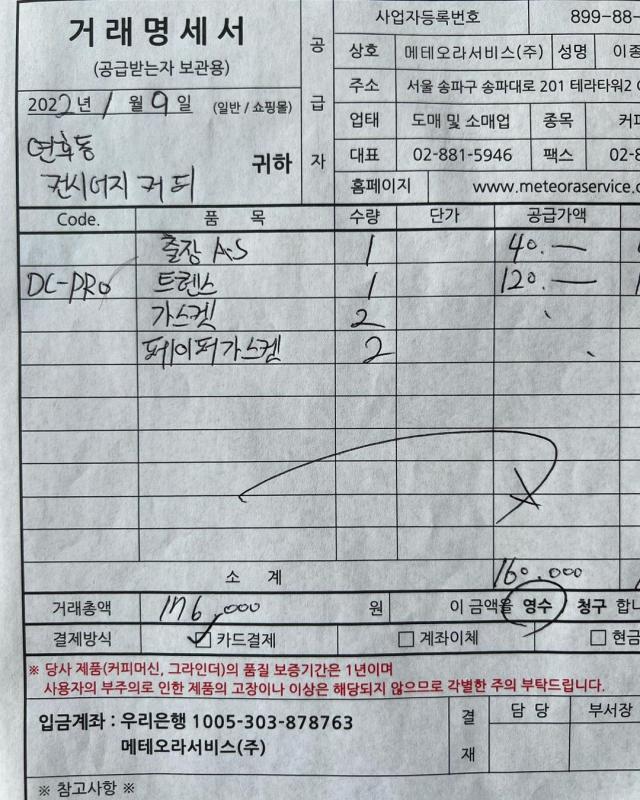 거래명세서
(공급받는자 보관용)
2022년 1월 9일 (일반 / 쇼핑몰)
연희동
컨시어지 커피 귀하
공급자
사업자등록번호 899-88-
상호 메테오라서비스(주) 성명 이종
주소 서울 송파구 송파대로 201 테라타워2
업태 도매 및 소매업 종목 커피
대표 02-881-5946 팩스 02-8
홈페이지 www.meteoraservice.c
Code. 품 목 수량 단가 공급가액
출장 A.S 1 40.—
DC-PRO 트렌스 1 120.—
가스켓 2
페이퍼가스켓 2
소 계 160.000
거래총액 176,000 원 이 금액을 영수 청구 합니
결제방식 ☑ 카드결제 □ 계좌이체 □ 현금
※ 당사 제품(커피머신, 그라인더)의 품질 보증기간은 1년이며
사용자의 부주의로 인한 제품의 고장이나 이상은 해당되지 않으므로 각별한 주의 부탁드립니다.
입금계좌 : 우리은행 1005-303-878763
메테오라서비스(주)
결재 담 당 부서장
※ 참고사항 ※